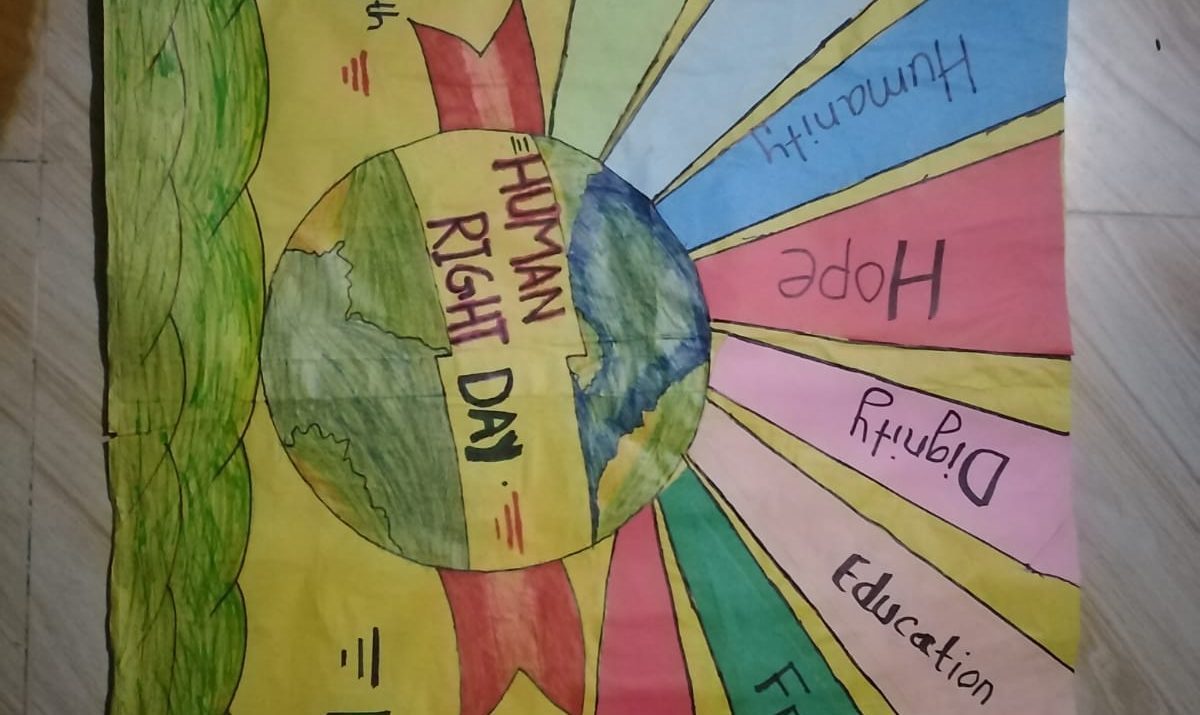 Humanity
Hope
Dignity
Education
HUMAN
RIGHT DAY.